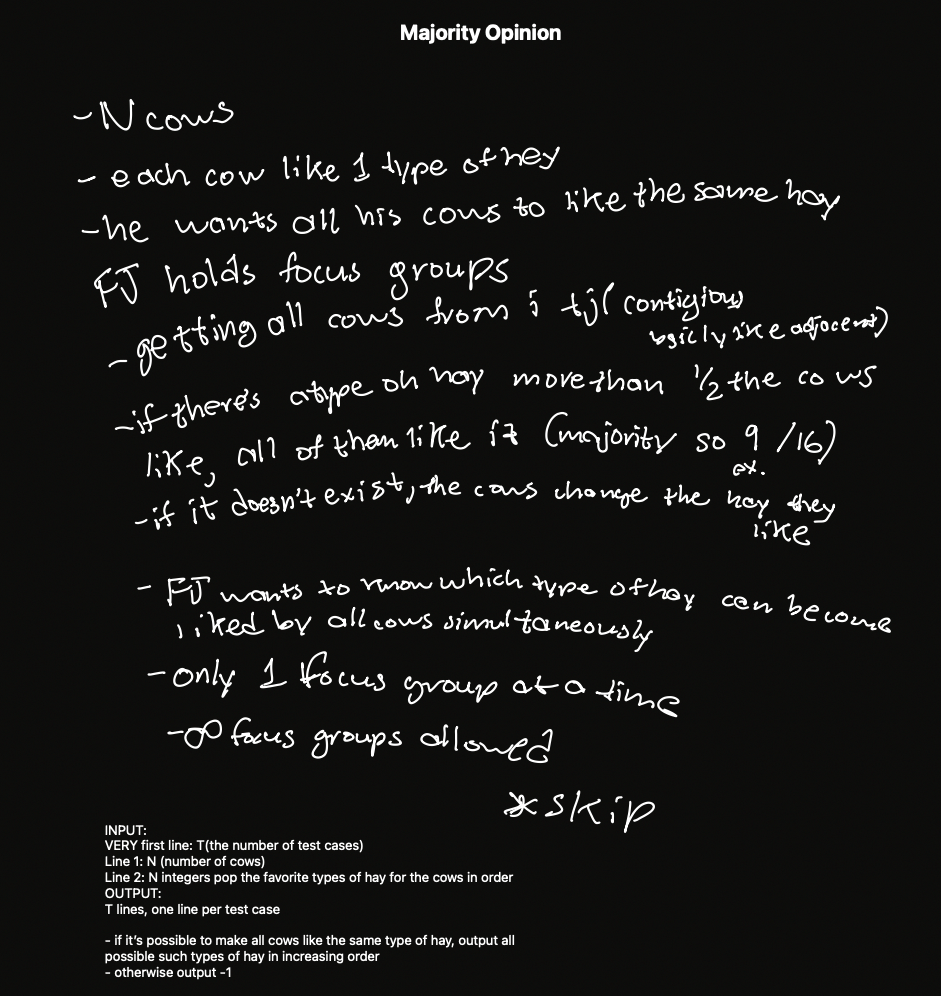 Majority Opinion
- N cows
- each cow like 1 type of hey
- he wants all his cows to like the same hay
FJ holds focus groups
- getting all cows from i tj (contigious
basiclylike adjacent)
- if there's atype oh hay more than 1/2 the cows
like, all of them like it (majority so 9 /16)
ex.
- if it doesn't exist, the cows change the hay they
like
- FJ wants to know which type of hay can become
liked by all cows simultaneously
- only 1 focus group at a time
- ∞ focus groups allowed
*skip
INPUT:
VERY first line: T(the number of test cases)
Line 1: N (number of cows)
Line 2: N integers pop the favorite types of hay for the cows in order
OUTPUT:
T lines, one line per test case
- if it's possible to make all cows like the same type of hay, output all
possible such types of hay in increasing order
- otherwise output -1